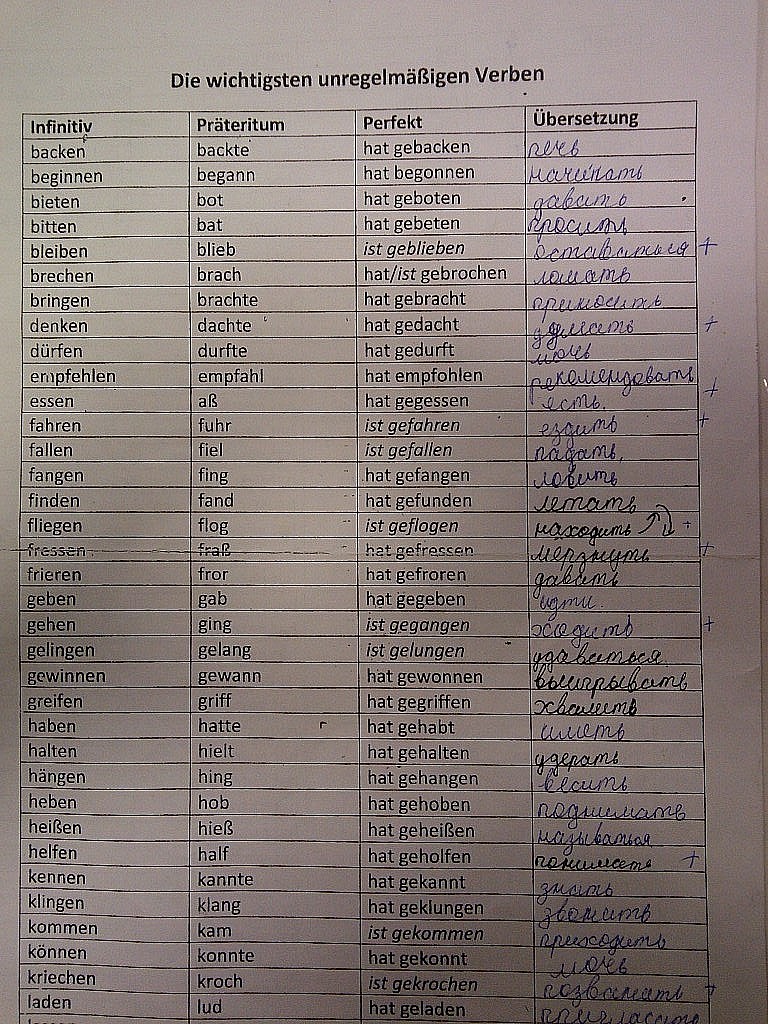 Die wichtigsten unregelmäßigen Verben
Infinitiv Präteritum Perfekt Übersetzung
backen backte hat gebacken печь
beginnen begann hat begonnen начинать
bieten bot hat geboten давать
bitten bat hat gebeten просить
bleiben blieb ist geblieben оставаться +
brechen brach hat/ist gebrochen ломать
bringen brachte hat gebracht приносить
denken dachte hat gedacht думать +
dürfen durfte hat gedurft мочь
empfehlen empfahl hat empfohlen рекомендовать
essen aß hat gegessen есть. +
fahren fuhr ist gefahren ездить +
fallen fiel ist gefallen падать,
fangen fing hat gefangen ловить
finden fand hat gefunden летать
fliegen flog ist geflogen находить +
fressen fraß hat gefressen мерзнуть +
frieren fror hat gefroren давать
geben gab hat gegeben идти.
gehen ging ist gegangen ходить +
gelingen gelang ist gelungen удаваться
gewinnen gewann hat gewonnen выигрывать
greifen griff hat gegriffen
haben hatte hat gehabt иметь
halten hielt hat gehalten
hängen hing hat gehangen весить
heben hob hat gehoben поднимать
heißen hieß hat geheißen называться
helfen half hat geholfen +
kennen kannte hat gekannt знать
klingen klang hat geklungen звонить
kommen kam ist gekommen приходить
können konnte hat gekonnt мочь
kriechen kroch ist gekrochen +
laden lud hat geladen приглашать